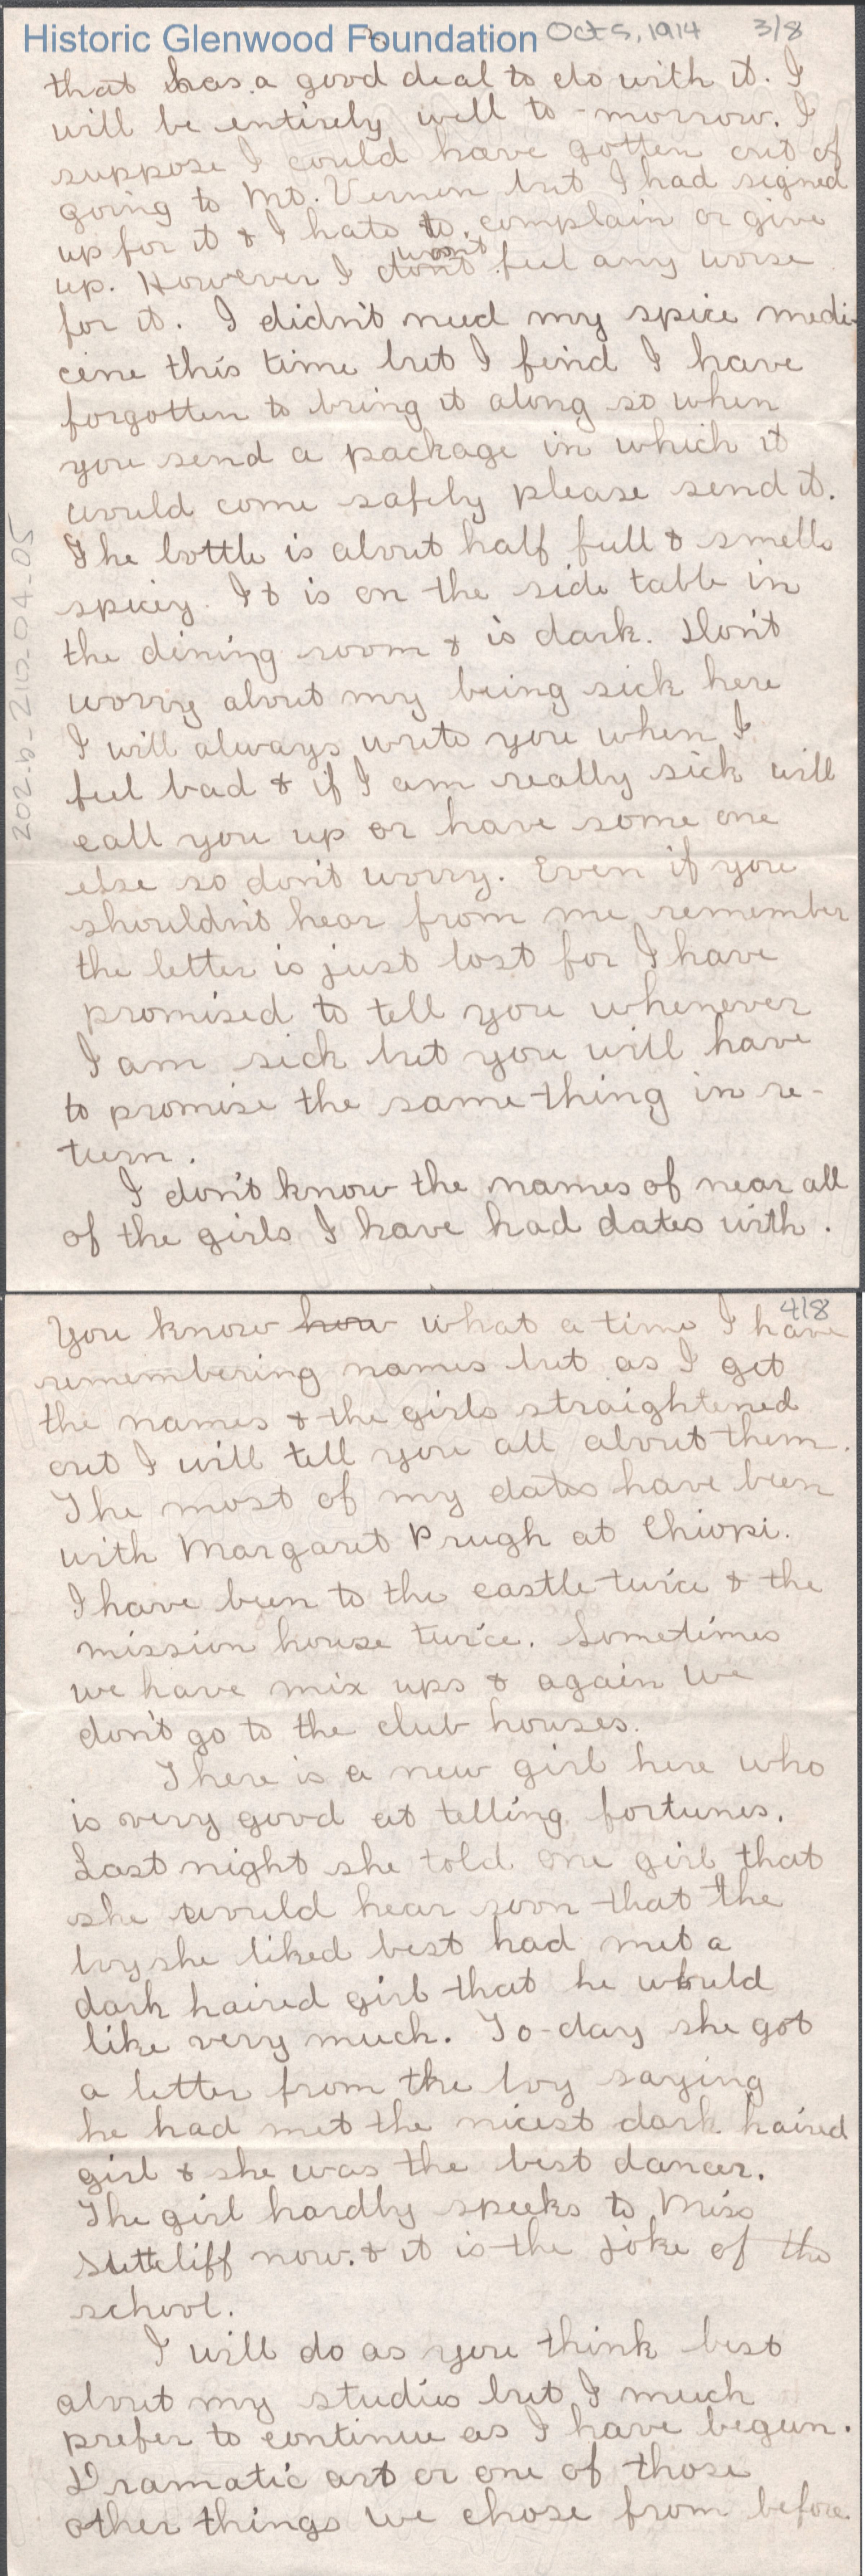 Historic Glenwood Foundation Oct 5, 1914 3/8
that has a good deal to do with it. I
will be entirely well to-morrow. I
suppose I could have gotten out of
going to Mt. Vernon but I had signed
up for it & I hate to complain or give
up. However I don't won't feel any worse
for it. I didn't need my spice medi-
cine this time but I find I have
forgotten to bring it along so when
you send a package in which it
would come safely please send it.
The bottle is about half full & smells
spicey. It is on the side table in
the dining room & is dark. Don't
worry about my being sick here
I will always write you when I
feel bad & if I am really sick will
call you up or have some one
else so don't worry. Even if you
shouldn't hear from me remember
the letter is just lost for I have
promised to tell you whenever
I am sick but you will have
to promise the same thing in re-
turn.
I don't know the names of near all
of the girls I have had dates with.
202.b-210-04-05
4/8
You know how what a time I have
remembering names but as I get
the names & the girls straightened
out I will tell you all about them.
The most of my dates have been
with Margaret Prugh at Chiopi.
I have been to the castle twice & the
mission house twice. Sometimes
we have mix ups & again we
don't go to the club houses.
There is a new girl here who
is very good at telling fortunes.
Last night she told one girl that
she would hear soon that the
boy she liked best had met a
dark haired girl that he would
like very much. To-day she got
a letter from the boy saying
he had met the nicest dark haired
girl & she was the best dancer.
The girl hardly speeks to Miss
Suttcliff now. & it is the joke of the
school.
I will do as you think best
about my studies but I much
prefer to continue as I have begun.
Dramatic art or one of those
other things we chose from before.